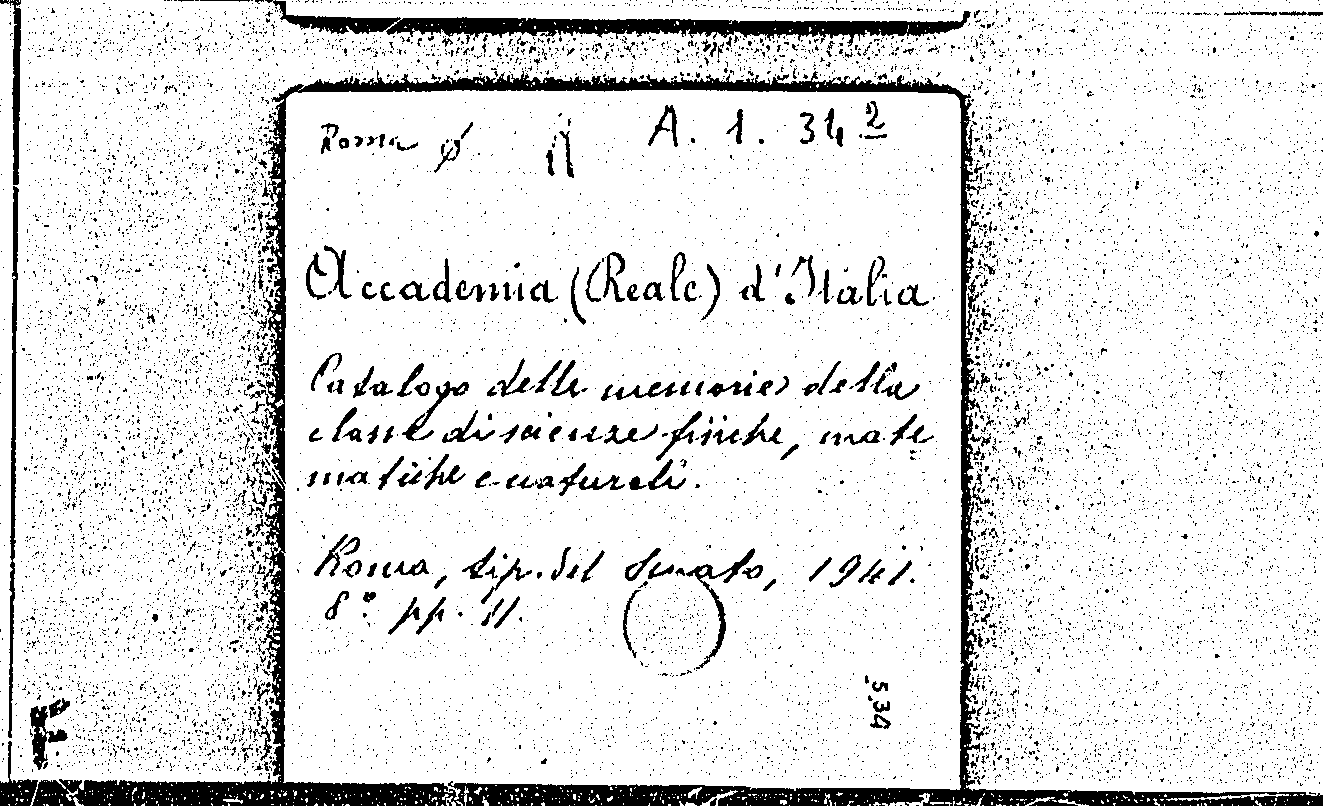 Roma A. 1. 34 2
Accademia (Reale) d'Italia
Catalogo delle memorie della
classe di scienze fisiche, mate
matiche e naturali.
Roma, tip. del Senato, 1941.
8° pp. 11.
534
F